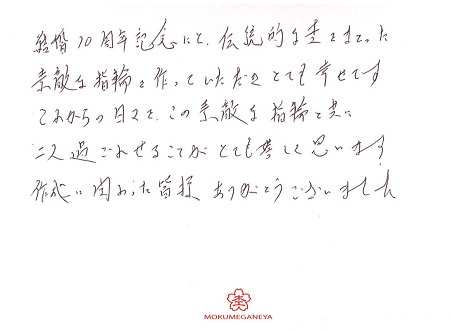 結婚10周年記念にて、伝統的な杢をまとった
素敵な指輪を作っていただきとても幸せです
これからの日々を、この素敵な指輪と共に
二人過ごせることがとても嬉しく思います
作成に関わった皆様 ありがとうございました
MOKUMEGANEYA